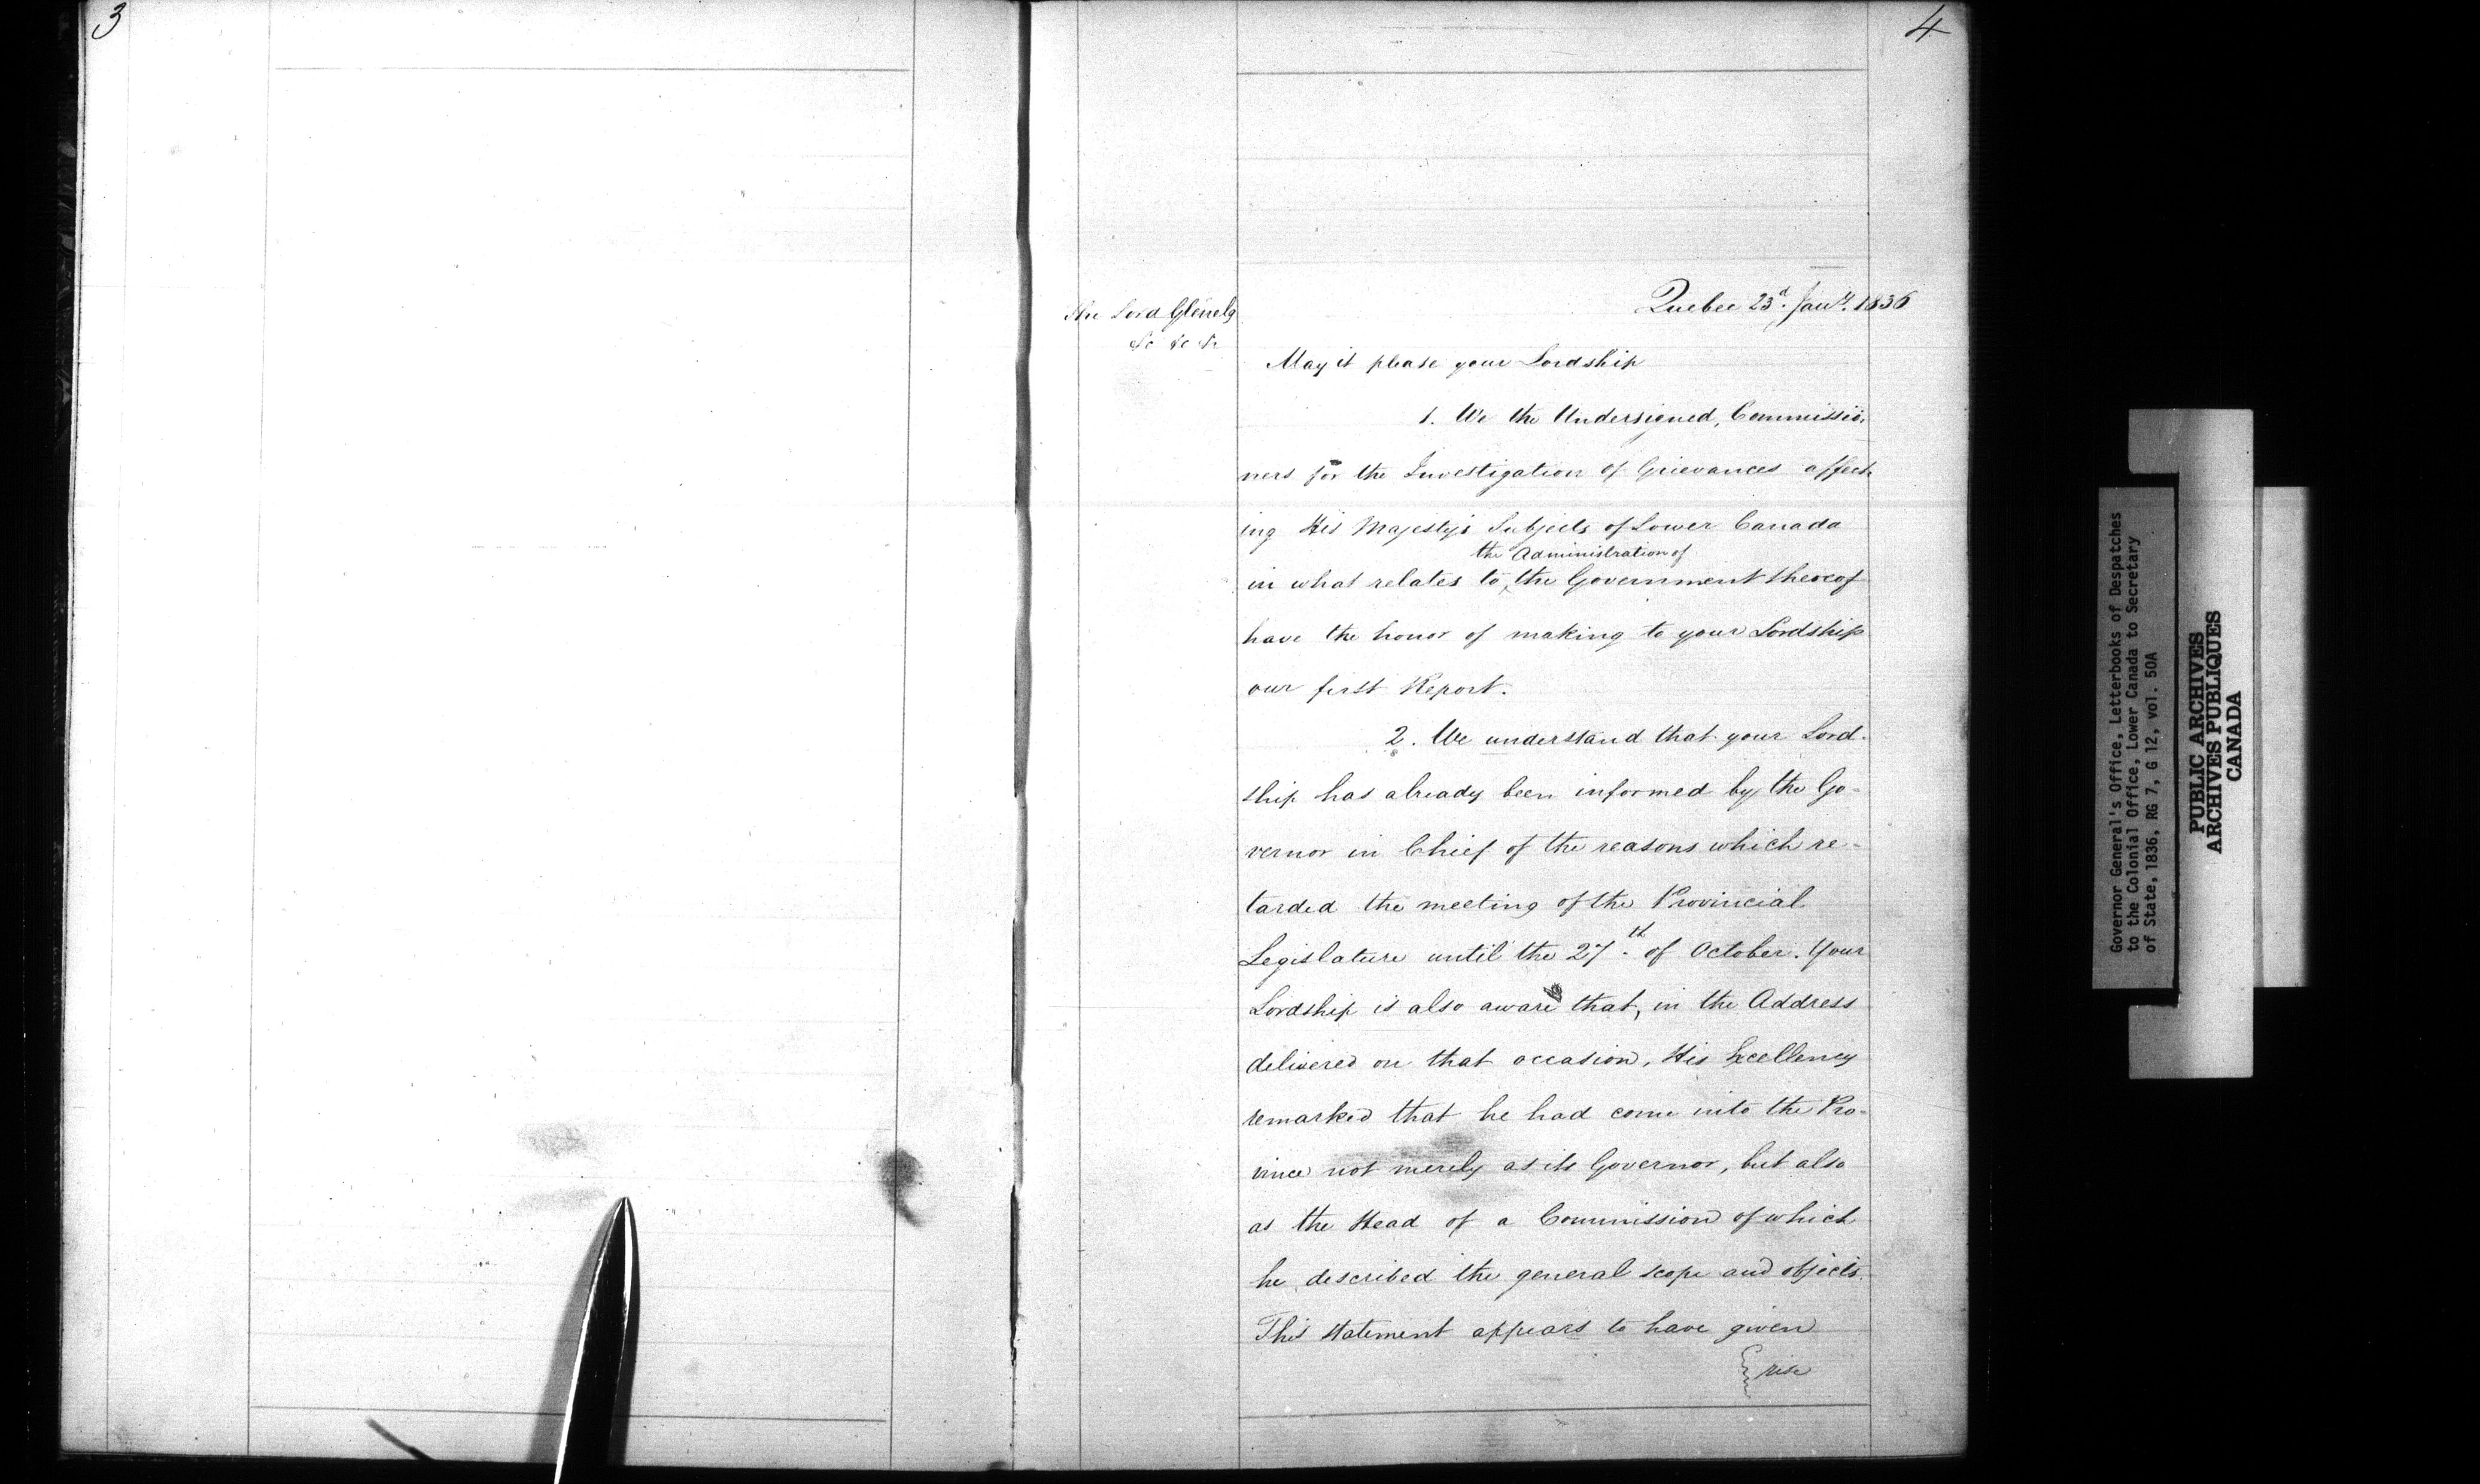 3
4
The Lord Glenelg
&c &c &c
Quebec 23d. Jany. 1836
May it please your Lordship
1. We the Undersigned, Commissio
ners for the Investigation of Grievances affect
ing His Majesty's Subjects of Lower Canada
the Administration of
in what relates to the Government thereof
have the honor of making to your Lordship
our first Report.
2. We understand that your Lord-
ship has already been informed by the Go-
vernor in Chief of the reasons which re-
tarded the meeting of the Provincial
Legislature until the 27th. of October. Your
Lordship is also aware that, in the Address
delivered on that occasion, His Excellency
remarked that he had come into the Pro-
vince not merely as its Governor, but also
as the Head of a Commission of which
he described the general scope and objects.
This statement appears to have given
rise
Governor General's Office, Letterbooks of Despatches
to the Colonial Office, Lower Canada to Secretary
of State, 1836, RG 7, G 12, vol. 50A
PUBLIC ARCHIVES
ARCHIVES PUBLIQUES
CANADA